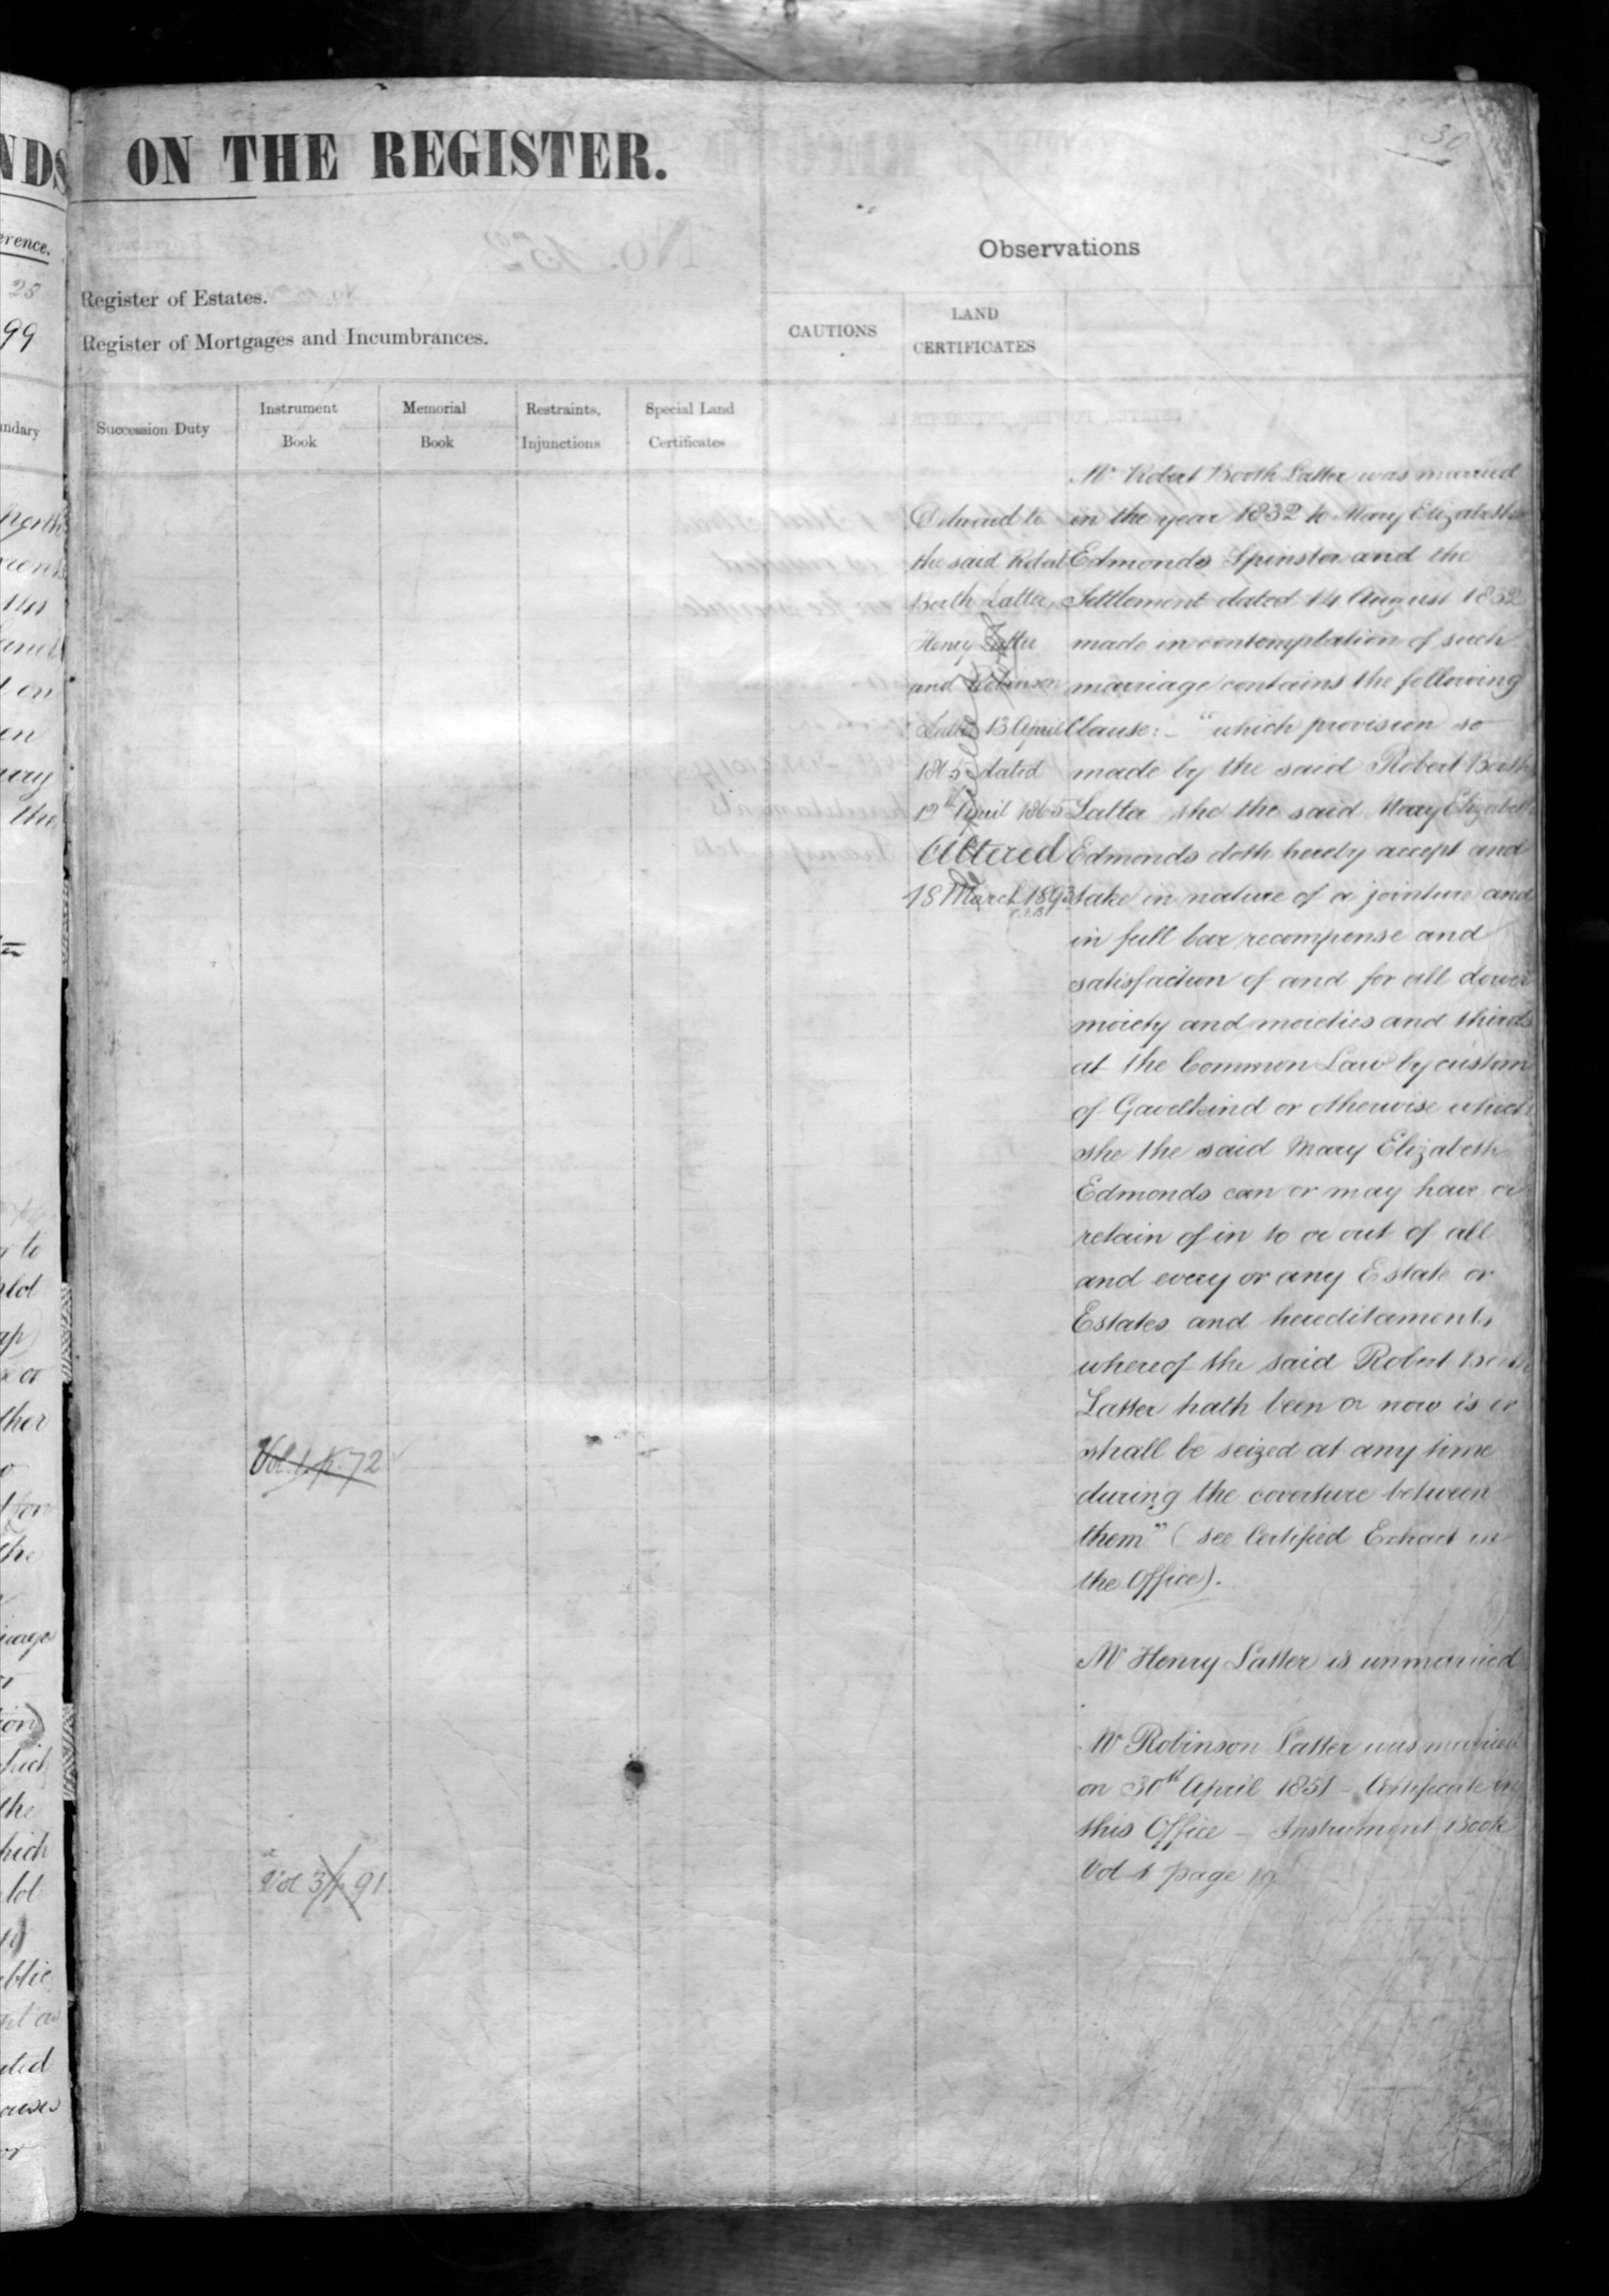 ON THE REGISTER.
30
Observations
Register of Estates.
Register of Mortgages and Incumbrances.
CAUTIONS
LAND
CERTIFICATES
Succession Duty
Instrument
Book
Memorial
Book
Restraints,
Injunctions
Special Land
Certificates
Delivered to
the said Robert
Booth Latter,
Henry Latter
and Robinson
Latter 13 April
1865 dated
12th April 1865
Altered
18 March 1893
Mr Robert Booth Latter was married
in the year 1832 to Mary Elizabeth
Edmonds Spinster and the
Settlement dated 14 August 1832
made in contemplation of such
marriage contains the following
Clause:- "which provision so
made by the said Robert Booth
Latter she the said Mary Elizabeth
Edmonds doth hereby accept and
take in nature of a jointure and
in full bar recompense and
satisfaction of and for all dower
moiety and moieties and thirds
at the Common Law by custom
of Gavelkind or otherwise which
she the said Mary Elizabeth
Edmonds can or may have or
retain of in to or out of all
and every or any Estate or
Estates and hereditaments
whereof the said Robert Booth
Latter hath been or now is or
shall be seized at any time
during the coverture between
them" (see Certified Extract in
the Office).
Vol. 1. p. 72
Mr Henry Latter is unmarried
Mr Robinson Latter was married
on 30th April 1851 - Certificate in
this Office - Instrument Book
Vol 1 page 19
Vol 3 p 91